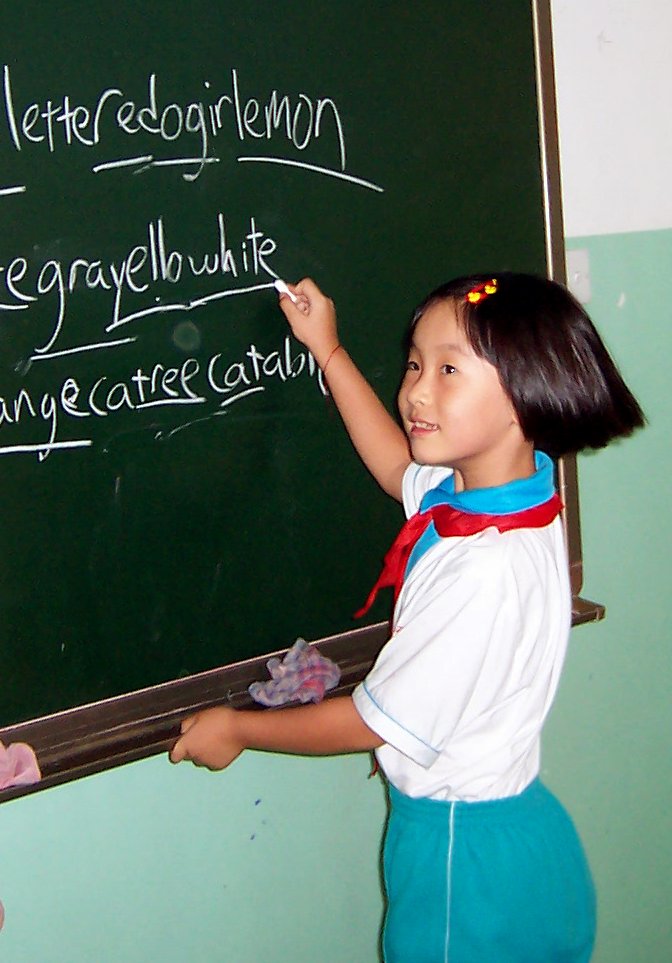 letteredogirlemon
egrayellowhite
angecatreecatabl